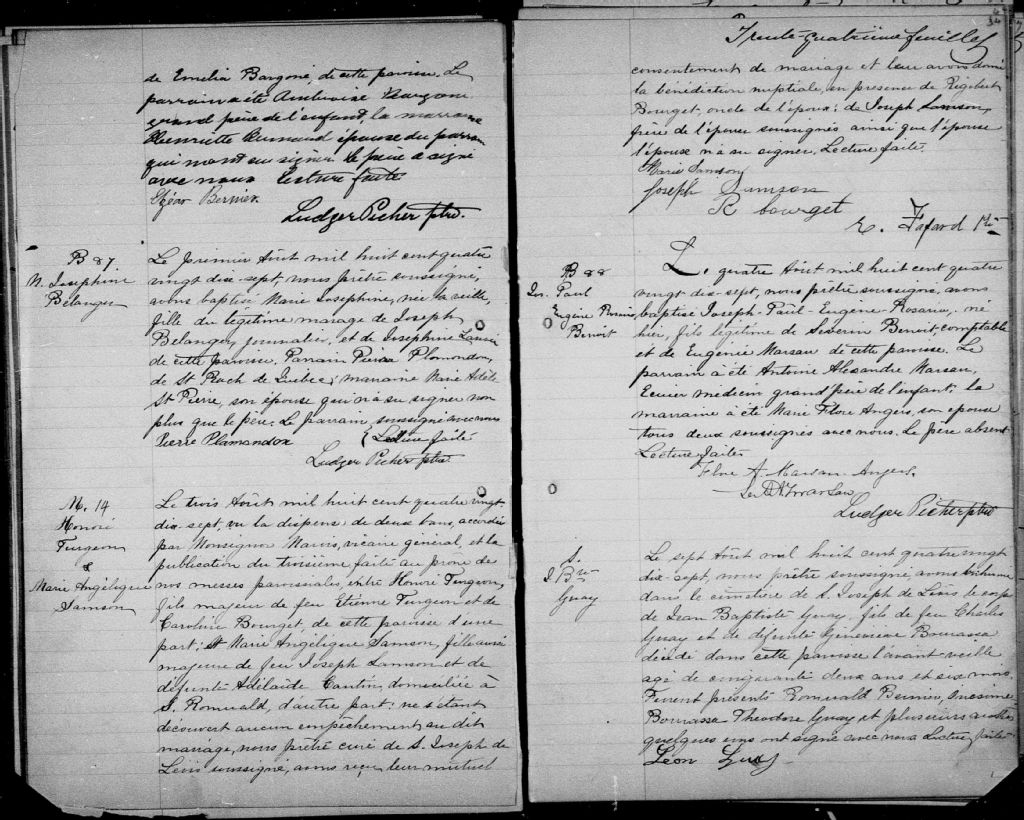 de Emelia Bargone, de cette paroisse. Le
parrain a été Ambroise Bargone
grand père de l'enfant, la marraine
Henriette épouse du parrain
qui n'ont su signer le père a signé
avec nous Lecture faite
Bernier
Ludger Picher ptre.
B 87
M. Josephine
Belanger
Le premier Août mil huit cent quatre
vingt dix-sept, nous prêtre soussigné,
avons baptisé Marie Josephine, née la veille,
fille du légitime mariage de Joseph
Belanger, journalier, et de Josephine
de cette paroisse. Parrain Pierre Plomondon,
de St Roch de Quebec; marraine Marie Adèle
St Pierre, son épouse qui n'a su signer non
plus que le père. Le parrain soussigné avec nous
Pierre Plamondon { Lecture faite
Ludger Picher ptre.
M. 14
Honoré
Turgeon
&
Marie Angélique
Samson
Le trois Août mil huit cent quatre vingt
dix-sept, vu la dispense de deux bans, accordée
par Monsignor Marois, vicaire général, et la
publication du troisième faite au prône de
nos messes paroissiales, entre Honoré Turgeon,
fils majeur de feu Etienne Turgeon et de
Caroline Bourget de cette paroisse d'une
part; et Marie Angélique Samson, fille aussi
majeure de feu Joseph Samson et de
défunte Adélaide Cantin, domiciliée à
S. Romuald, d'autre part; ne s'étant
découvert aucun empêchement au dit
mariage, nous prêtre curé de S. Joseph de
Lévis soussigné, avons reçu leur mutuel
34
Trente-quatrième feuillet
consentement de mariage et leur avons donné
la bénédiction nuptiale, en présence de Rigobert
Bourget, oncle de l'époux; de Joseph Samson,
frère de l'épouse soussignés ainsi que l'épouse
l'épouse n'a su signer. Lecture faite.
Marie Samson
Joseph Samson
R bourget
E. Fafard Ptre
B 88
Jos. Paul
Eugène Rosario
Benoit
Le quatre Août mil huit cent quatre
vingt dix-sept, nous prêtre soussigné, avons
baptisé Joseph-Paul-Eugène-Rosario, né
hier, fils légitime de Severin Benoit, comptable
et de Eugénie Marsan de cette paroisse. Le
parrain a été Antoine Alexandre Marsan,
Ecuier médecin grand père de l'enfant; la
marraine a été Marie Flore Angers, son epouse
tous deux soussignés avec nous. Le père absent
Lecture faite
Flore A. Marsan-Angers.
Marsan
Ludger Picher ptre
S.
J. Bte
Guay
Le sept Août mil huit cent quatre vingt
dix-sept, nous prêtre soussigné, avons inhumé
dans le cimetière de S. Joseph de Lévis le corps
de Jean Baptiste Guay, fils de feu Charles
Guay et de défunte Geneviève Bourassa
décédé dans cette paroisse l'avant-veille
agé de cinquante deux ans et six mois.
Furent présents Romuald Bernier, Onesime
Bourassa Theodore Guay et plusieurs autres
quelques uns ont signé avec nous Lecture faite
Léon Guay